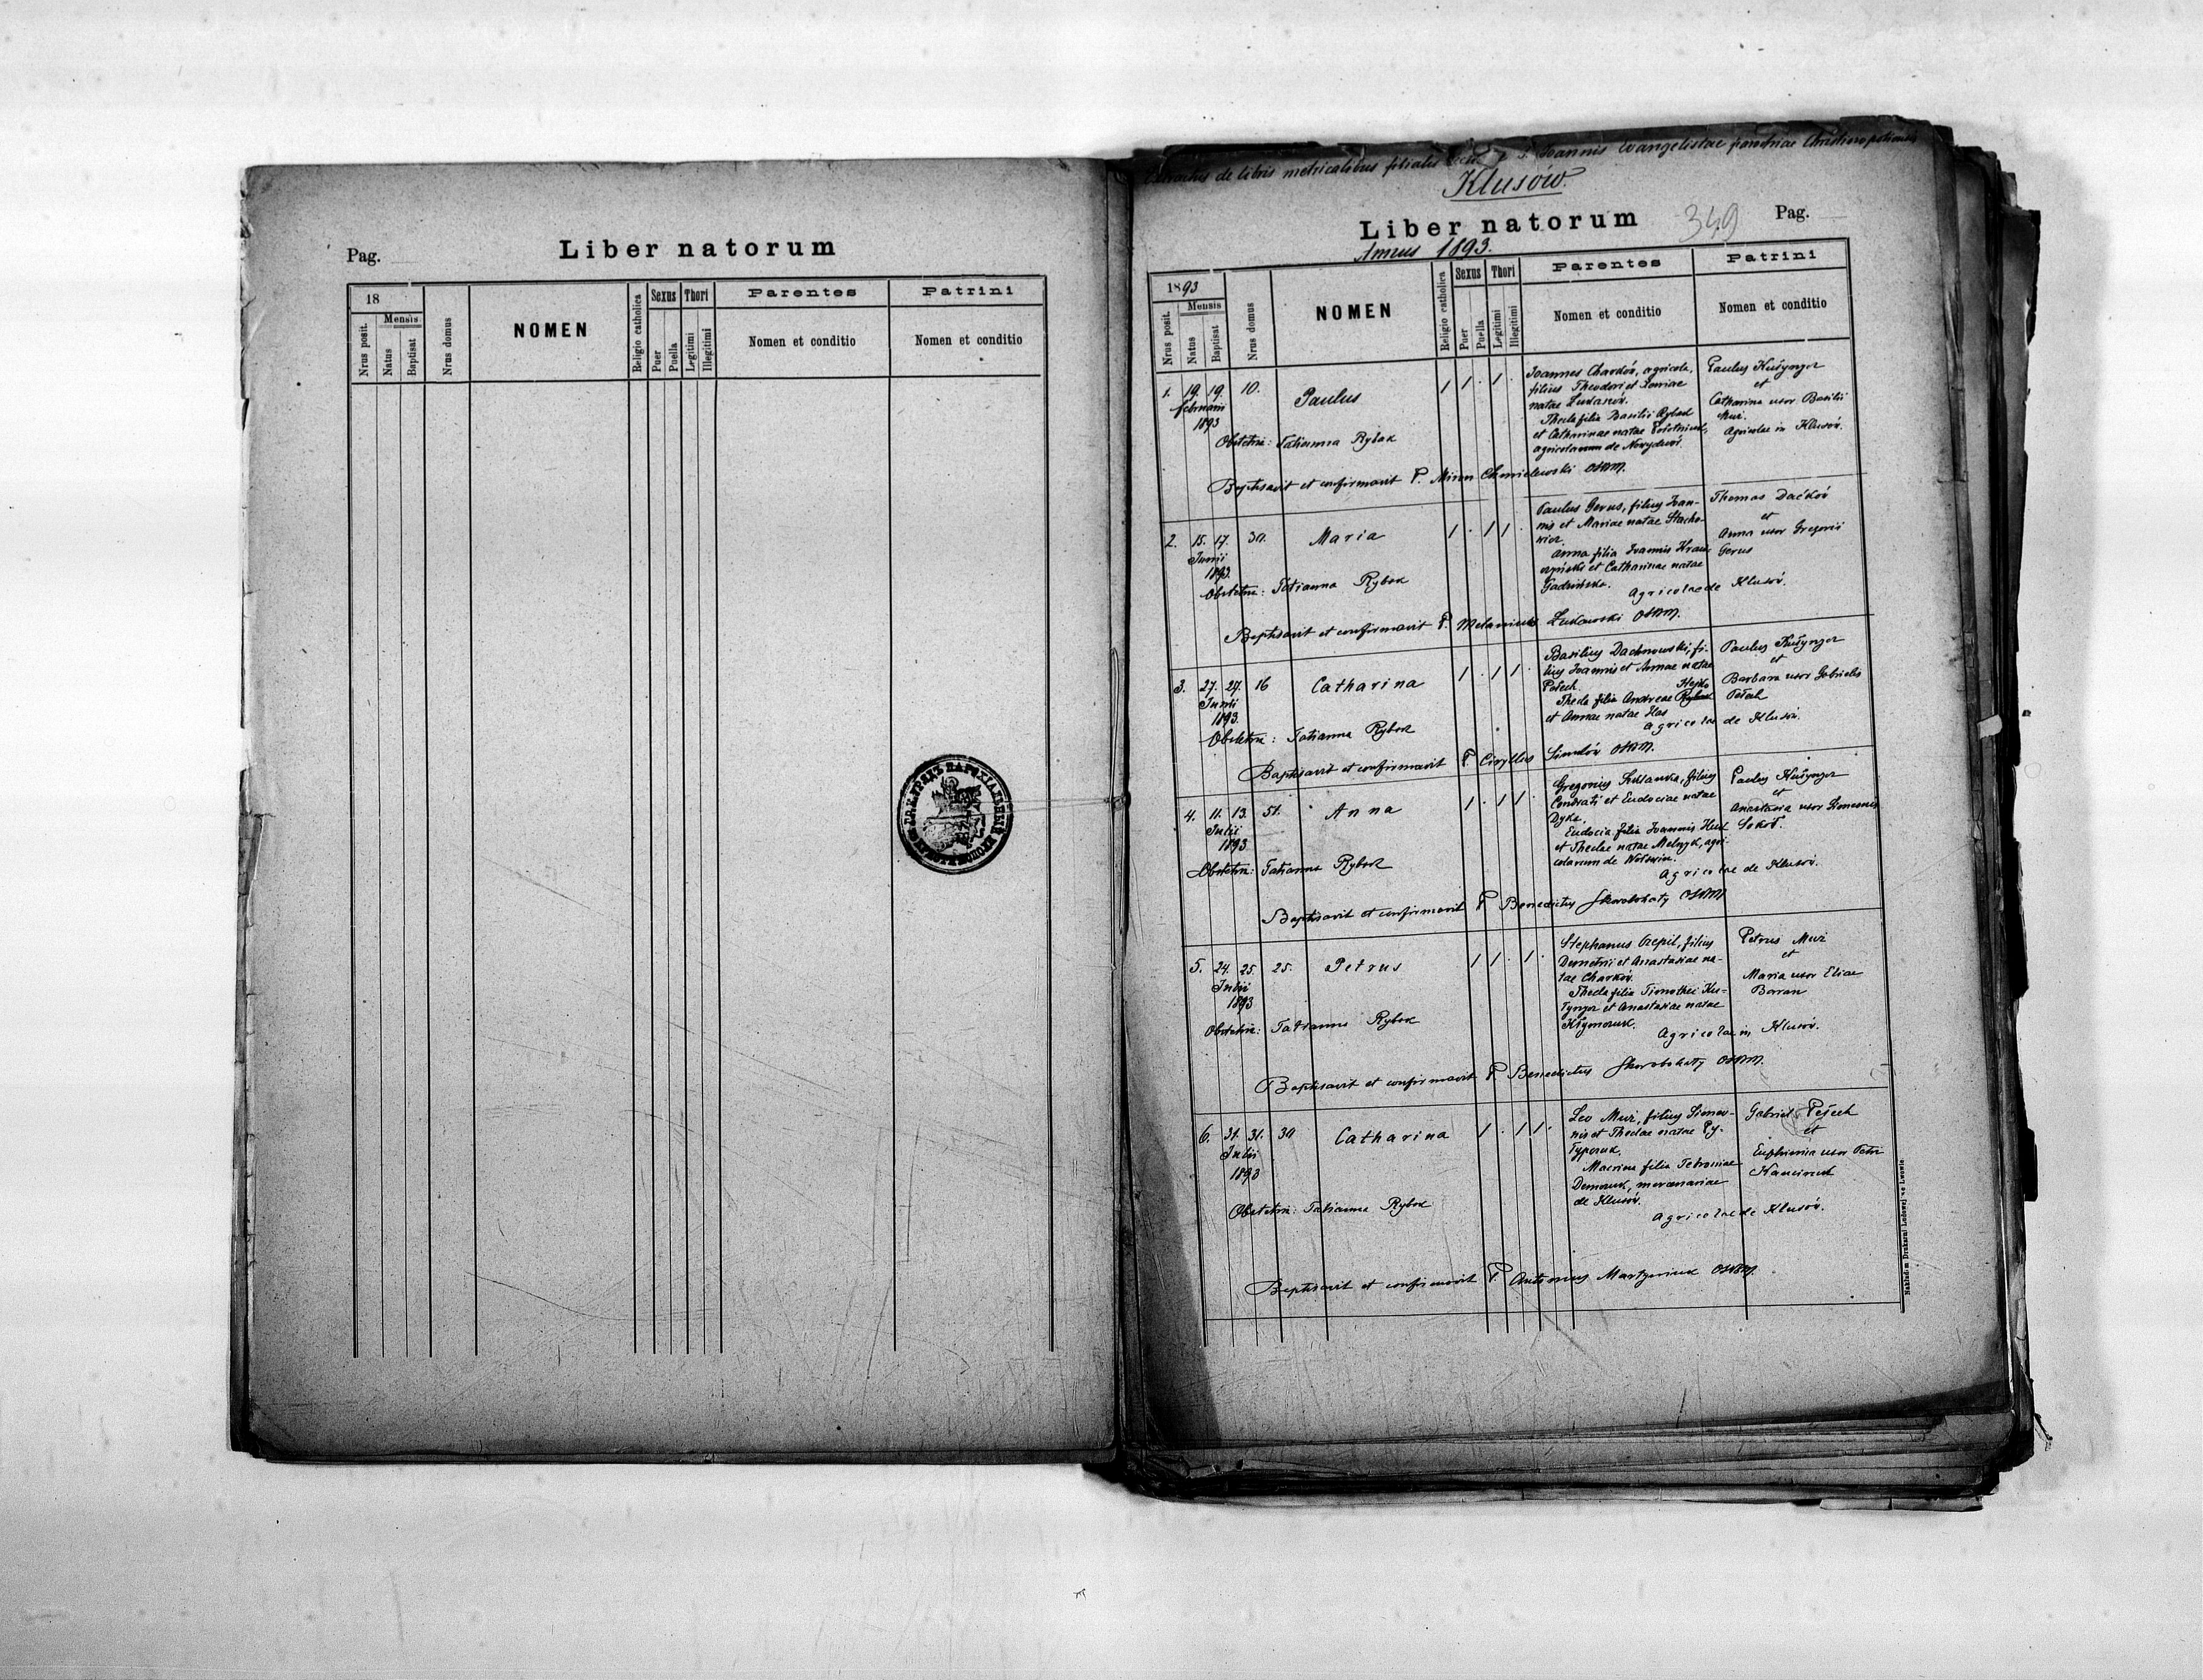 Pag.
Liber natorum
18
Mensis
Nrus posit.
Natus
Baptisat
Nrus domus
NOMEN
Religio catholica
Sexus
Puer
Puella
Thori
Legitimi
Illegitimi
Parentes
Nomen et conditio
Patrini
Nomen et conditio
de libris metricalibus filialis S. Joannis Evangelistae parochiae Christinopoliensis
Klusów.
Liber natorum
349
Pag.
Annus 1893.
1893
Mensis
Nrus posit.
Natus
Baptisat
Nrus domus
NOMEN
Religio catholica
Sexus
Puer
Puella
Thori
Legitimi
Illegitimi
Parentes
Nomen et conditio
Patrini
Nomen et conditio
1. 19. 19. 10. Paulus 1 1 . 1 .
Februarii
1893
Obstetrix: Tatianna Rybak
Joannes Charków, agricola,
filius Theodori et Xeniae
natae
Thecla filia Basilii Rybak
et Catharinae natae
agricolarum de Nowydwór.
Paulus Kušynżer
et
Catharina uxor Basilii
Mur.
Agricolae in Klusów.
Baptisavit et confirmavit P. Miron Chmielewski OSBM.
2. 15. 17. 30. Maria 1 . 1 1 .
Junii
1893.
Obstetrix: Tatianna Rybak
Paulus Gerus, filius Joan-
nis et Mariae natae Stacho-
Anna filia Joannis
et Catharinae natae
Thomas Dačków
et
Anna uxor Gregorii
Gerus
Agricolae de Klusów.
Baptisavit et confirmavit P. OSBM.
3. 27. 27. 16 Catharina 1 . 1 1 .
Junii
1893.
Obstetrix: Tatianna Rybak
Basilius Dachnowski, fi-
lius Joannis et Annae natae
Pełech.
Thecla filia Andreae Hojko
et Annae natae Has
Paulus Kušynżer
et
Barbara uxor Gabrielis
Pełech
Agricolae de Klusów.
Baptisavit et confirmavit P. Ciryllus OSBM.
4. 11. 13. 51. Anna 1 . 1 1 .
Julii
1893
Obstetrix: Tatianna Rybak
Gregorius filius
Condrati et Eudociae natae
Dyka.
Eudocia filia Joannis
et Theclae natae Melnyk, agri-
colarum de
Paulus Kušynżer
et
Anastasia uxor
Sokół.
Agricolae de Klusów.
Baptisavit et confirmavit P. Benedictus Skorobohaty OSBM
5. 24. 25. 25. Petrus 1 1 . 1 .
Julii
1893
Obstetrix: Tatianna Rybak
Stephanus Czepil, filius
Demetrii et Anastasiae na-
tae Charków.
Thecla filia Timothei Ku-
et Anastasiae natae
Petrus Mur
et
Maria uxor Eliae
Baran
Agricolae in Klusów.
Baptisavit et confirmavit P. Benedictus Skorobohaty OSBM.
6. 31. 31. 30 Catharina 1 . 1 1 .
Julii
1893
Obstetrix: Tatianna Rybak
Leo Mur, filius Simeo-
nis et Theclae natae Py-
Macrina filia
mercenariae
de Klusów.
Gabriel Pełech
et
Euphemia uxor Petri
Agricolae de Klusów.
Baptisavit et confirmavit P. Antonius Martyniuk OSBM.
Nakładem Drukarni Ludowej we Lwowie